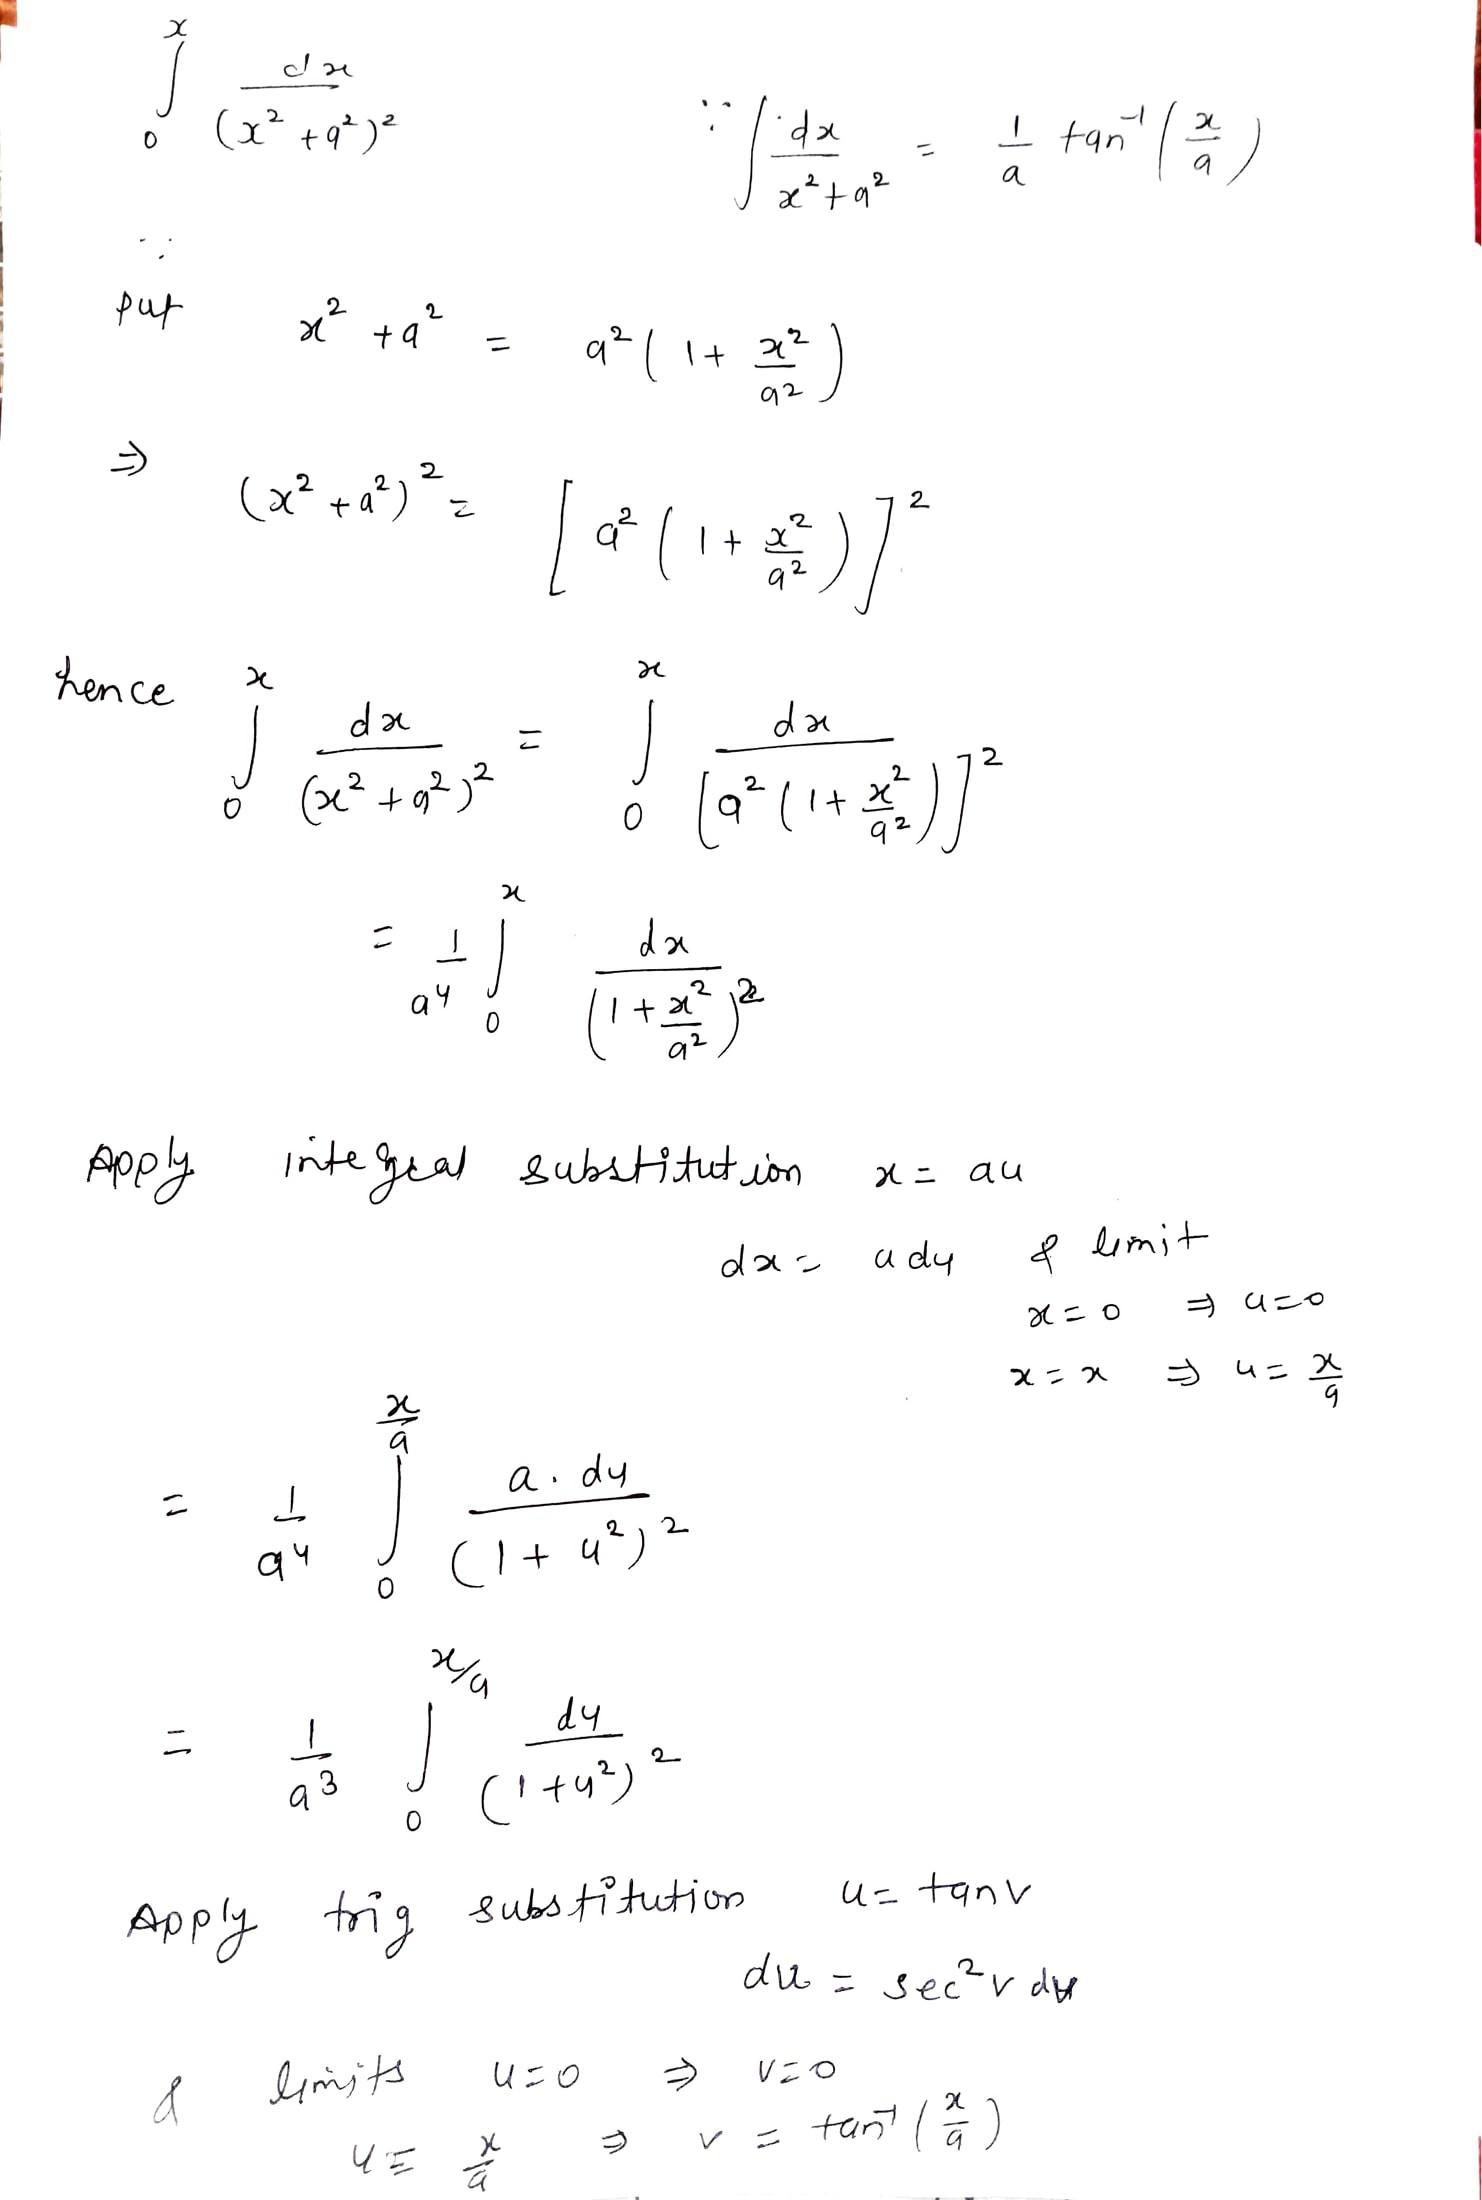 ∫₀ˣ dx / (x² + a²)²
∵ ∫ dx / (x² + a²) = 1/a tan⁻¹(x/a)
∵
put x² + a² = a²(1 + x²/a²)
⇒ (x² + a²)² = [a²(1 + x²/a²)]²
hence ∫₀ˣ dx / (x² + a²)² = ∫₀ˣ dx / [a²(1 + x²/a²)]²
= 1/a⁴ ∫₀ˣ dx / (1 + x²/a²)²
Apply integral substitution x = au
dx = a du & limit
x = 0 ⇒ u = 0
x = x ⇒ u = x/a
= 1/a⁴ ∫₀^(x/a) a · du / (1 + u²)²
= 1/a³ ∫₀^(x/a) du / (1 + u²)²
Apply trig substitution u = tan v
du = sec² v dv
& limits u = 0 ⇒ v = 0
u = x/a ⇒ v = tan⁻¹(x/a)